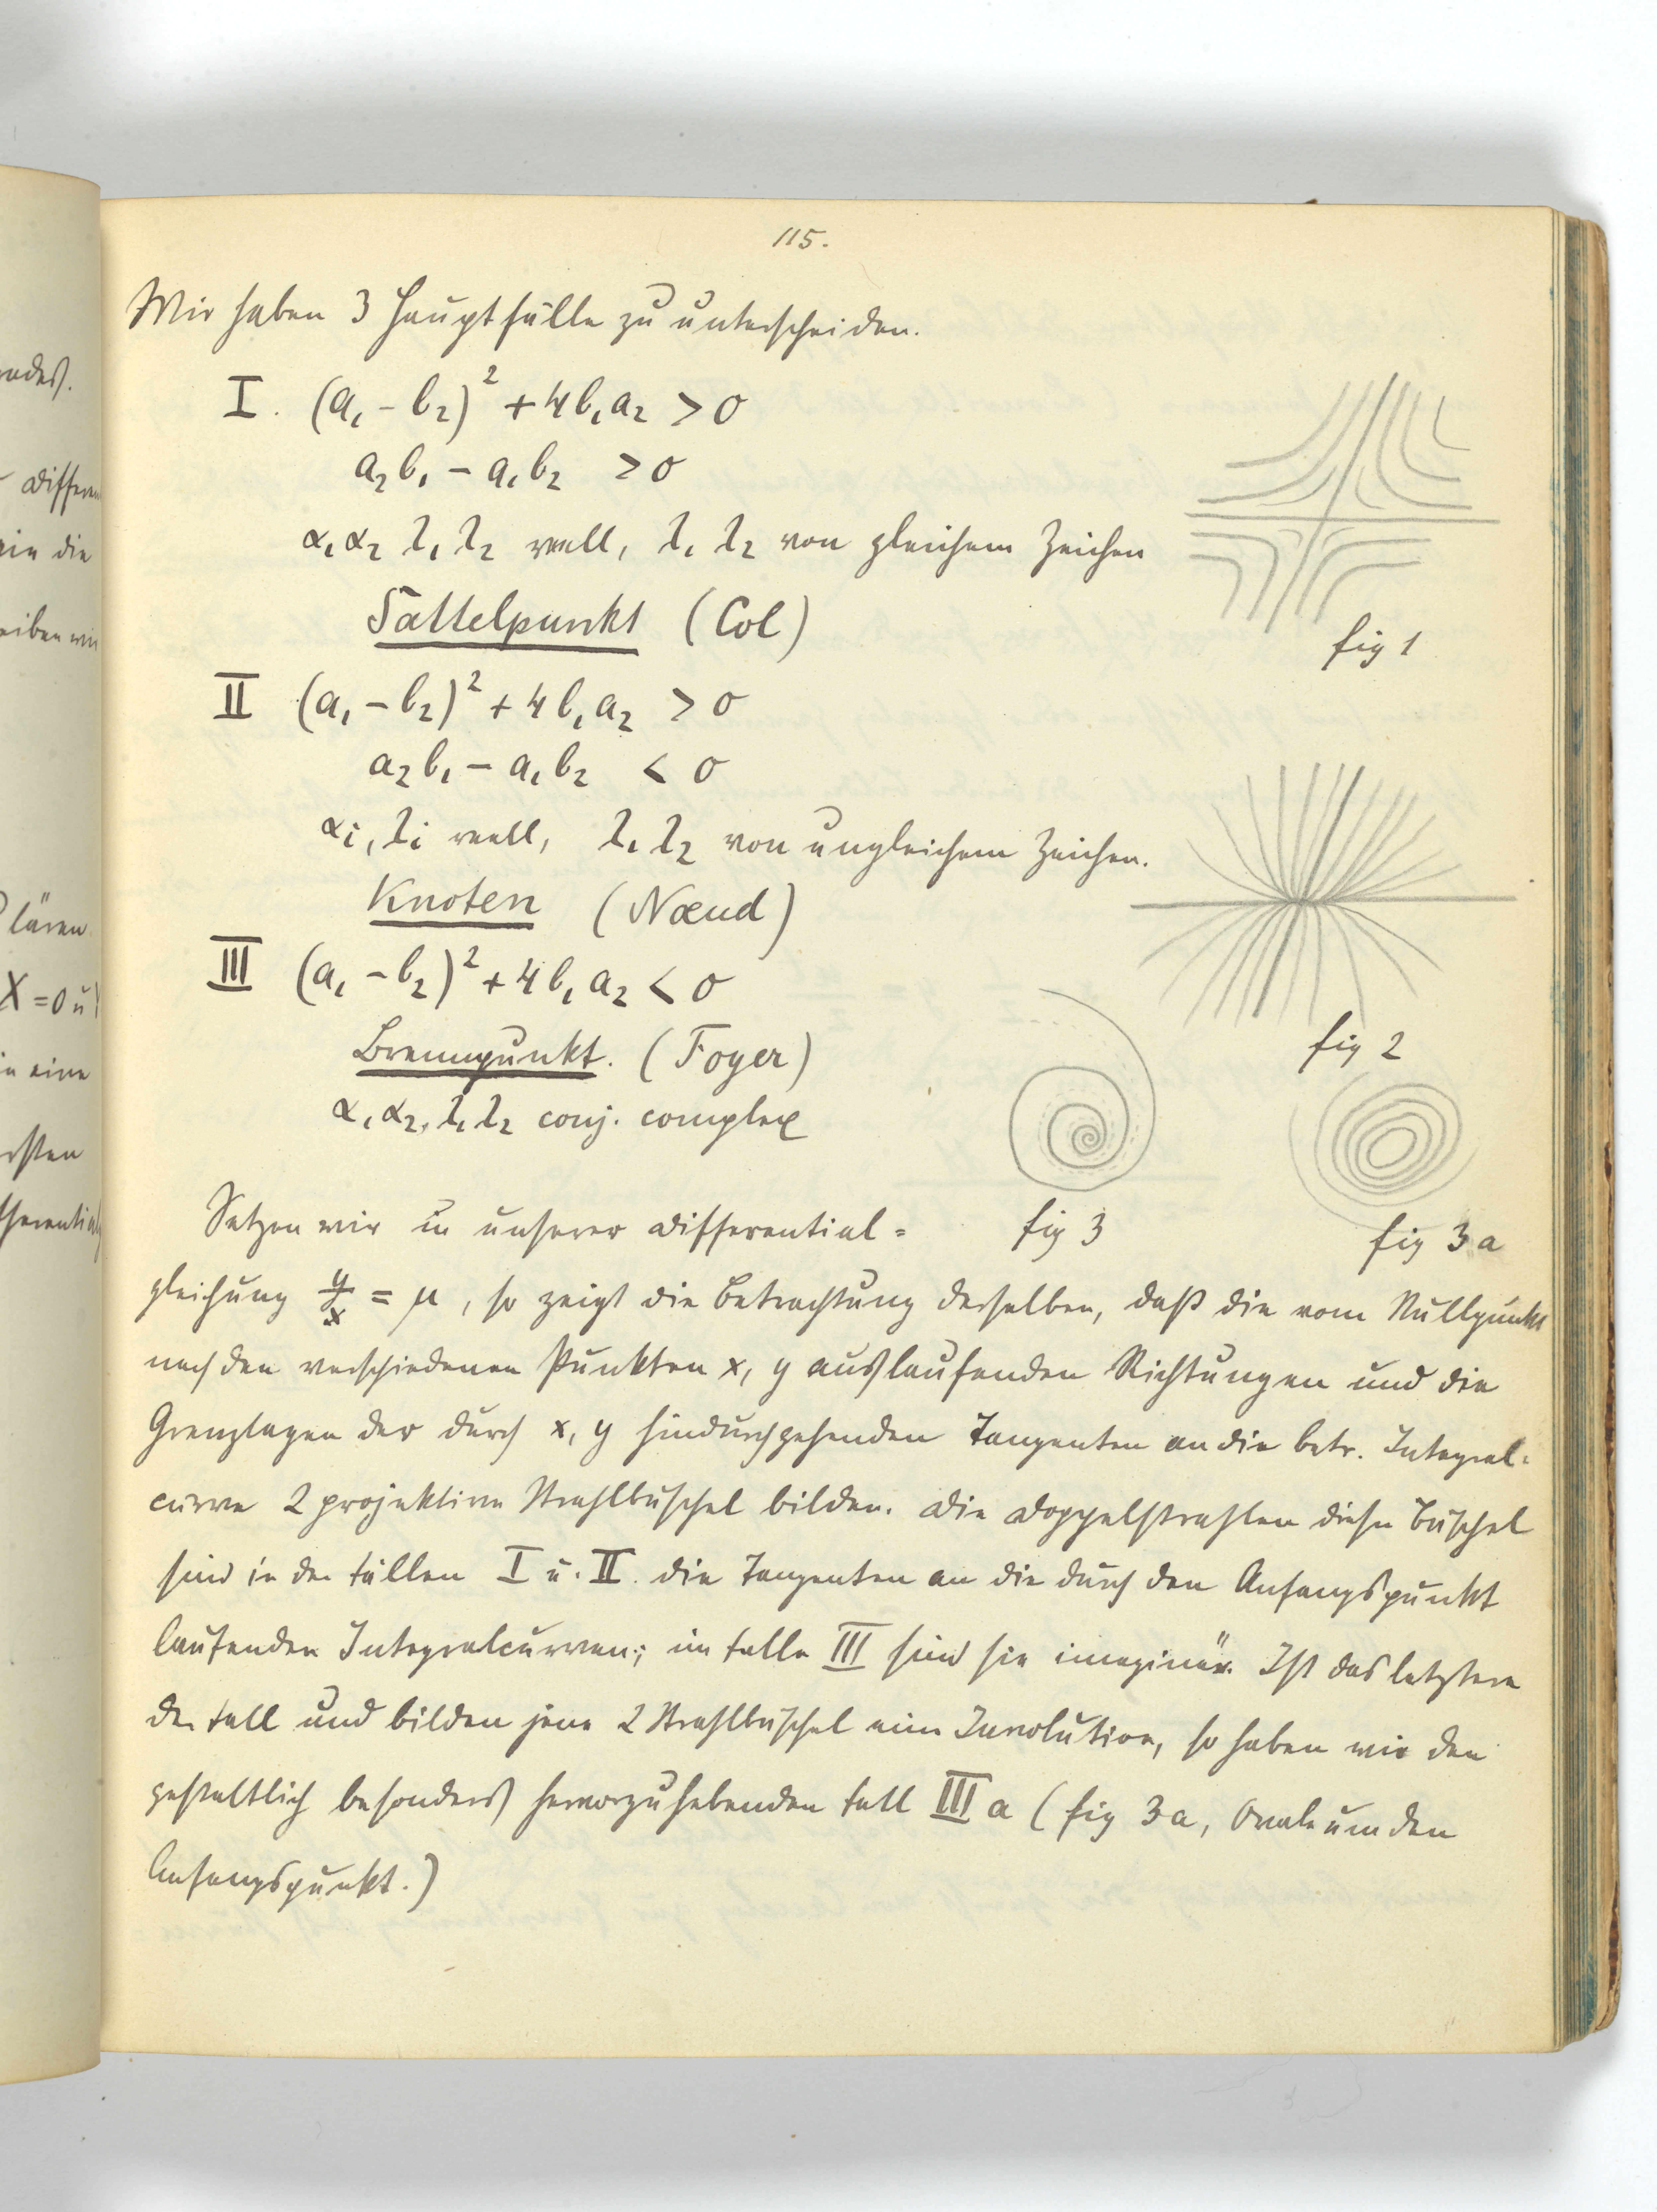 115.
Wir haben 3 Hauptfälle zu unterscheiden.
I. (a₁ - b₂)² + 4b₁a₂ > 0
a₂b₁ - a₁b₂ > 0
α₁α₂ λ₁λ₂ reell, λ₁ λ₂ von gleichem Zeichen
Sattelpunkt (Col)
fig 1
II (a₁ - b₂)² + 4b₁a₂ > 0
a₂b₁ - a₁b₂ < 0
αi, λi reell, λ₁ λ₂ von ungleichem Zeichen.
Knoten (Nœud)
fig 2
III (a₁ - b₂)² + 4b₁a₂ < 0
Brennpunkt. (Foyer)
α₁α₂, λ₁λ₂ conj. complex
fig 3
fig 3a
Setzen wir in unserer Differential=
gleichung y/x = μ, so zeigt die Betrachtung derselben, daß die vom Nullpunkt
nach den verschiedenen Punkten x, y auslaufenden Richtungen und die
Grenzlagen der durch x, y hindurchgehenden Tangenten an die betr. Integral=
curve 2 projektive Strahlbüschel bilden. Die Doppelstrahlen dieser Büschel
sind in den Fällen I u. II. die Tangenten an die durch den Anfangspunkt
laufenden Integralcurven; im Falle III sind sie imaginär. Ist das letztere
der Fall und bilden jene 2 Strahlbüschel eine Involution, so haben wir den
gestaltlich besonders hervorzuhebenden Fall III a (fig 3a, Ovale um den
Anfangspunkt.)
andes.
Differen
die
eiben wir
lären
X = 0 u
in eine
ersten
fferential